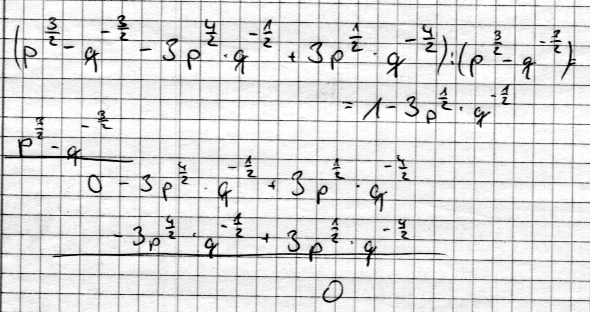 (p^{3/2} - q^{-3/2} - 3p^{4/2} · q^{-1/2} + 3p^{1/2} · q^{-4/2}) : (p^{3/2} - q^{-3/2}) =
= 1 - 3p^{1/2} · q^{-1/2}
p^{3/2} - q^{-3/2}
0 - 3p^{4/2} · q^{-1/2} + 3p^{1/2} · q^{-4/2}
- 3p^{4/2} · q^{-1/2} + 3p^{1/2} · q^{-4/2}
0